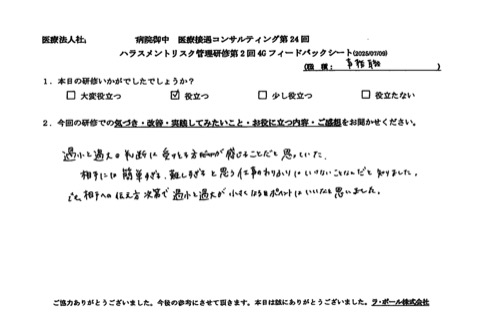 医療法人社　病院御中　医療接遇コンサルティング第24回
ハラスメントリスク管理研修第2回4Gフィードバックシート(2025/07/09)
(職種： 事務職 )
1．本日の研修いかがでしたでしょうか？
□ 大変役立つ ☑ 役立つ □ 少し役立つ □ 役立たない
2．今回の研修での気づき・改善・実践してみたいこと・お役に立つ内容・ご感想をお聞かせください。
過小と過大の判断に受けとる方が感じることだと思っていた。
相手には簡単すぎる、難しすぎると思う仕事のわりふりはいけないことなんだと知りました。
相手への伝え方次第で過小と過大が小さくなるポイントはいいなと思いました。
ご協力ありがとうございました。今後の参考にさせて頂きます。本日は誠にありがとうございました。ラ・ポール株式会社